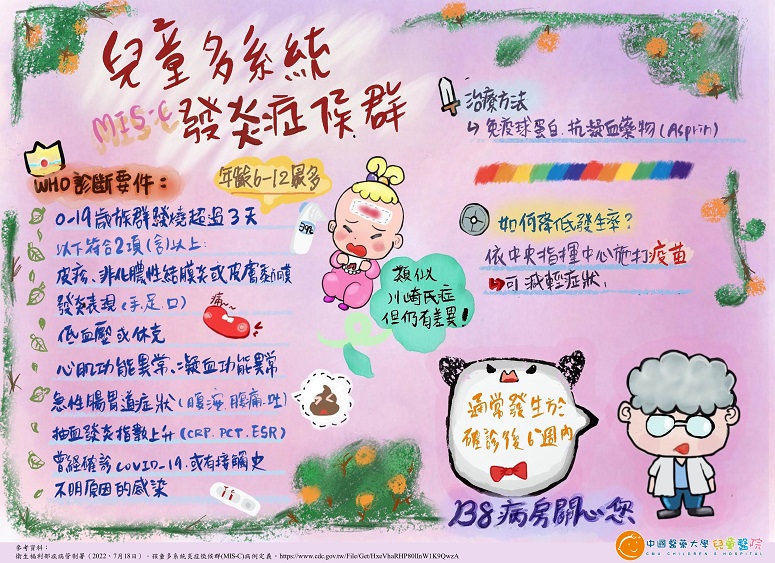 兒童多系統
MIS-C 發炎症候群
WHO診斷要件：
年齡6-12最多
0-19歲族群發燒超過3天
以下符合2項(含)以上：
皮疹、非化膿性結膜炎或皮膚黏膜
發炎表現(手.足.口)
低血壓或休克
心肌功能異常、凝血功能異常
急性腸胃道症狀(腹瀉.腹痛.吐)
抽血發炎指數上升(CRP.PCT.ESR)
曾經確診COVID-19.或有接觸史
不明原因的感染
痛~~
類似
川崎氏症
但仍有差異！
治療方法
↳免疫球蛋白.抗凝血藥物(Asprin)
如何降低發生率？
依中央指揮中心施打疫苗
↳可減輕症狀、
通常發生於
確診後6週內
B8病房關心您
參考資料：
衛生福利部疾病管制署(2022，7月18日)．孩童多系統炎症徵候群(MIS-C)病例定義．https://www.cdc.gov.tw/File/Get/HxeVhaRHP80lInW1K9QwzA
中國醫藥大學 兒童醫院
CMU CHILDREN'S HOSPITAL